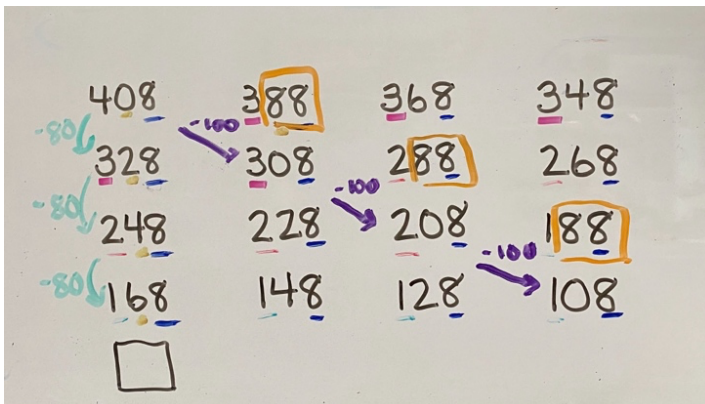 408 388 368 348
-80 -100
328 308 288 268
-80 -100
248 228 208 188
-80 -100
168 148 128 108